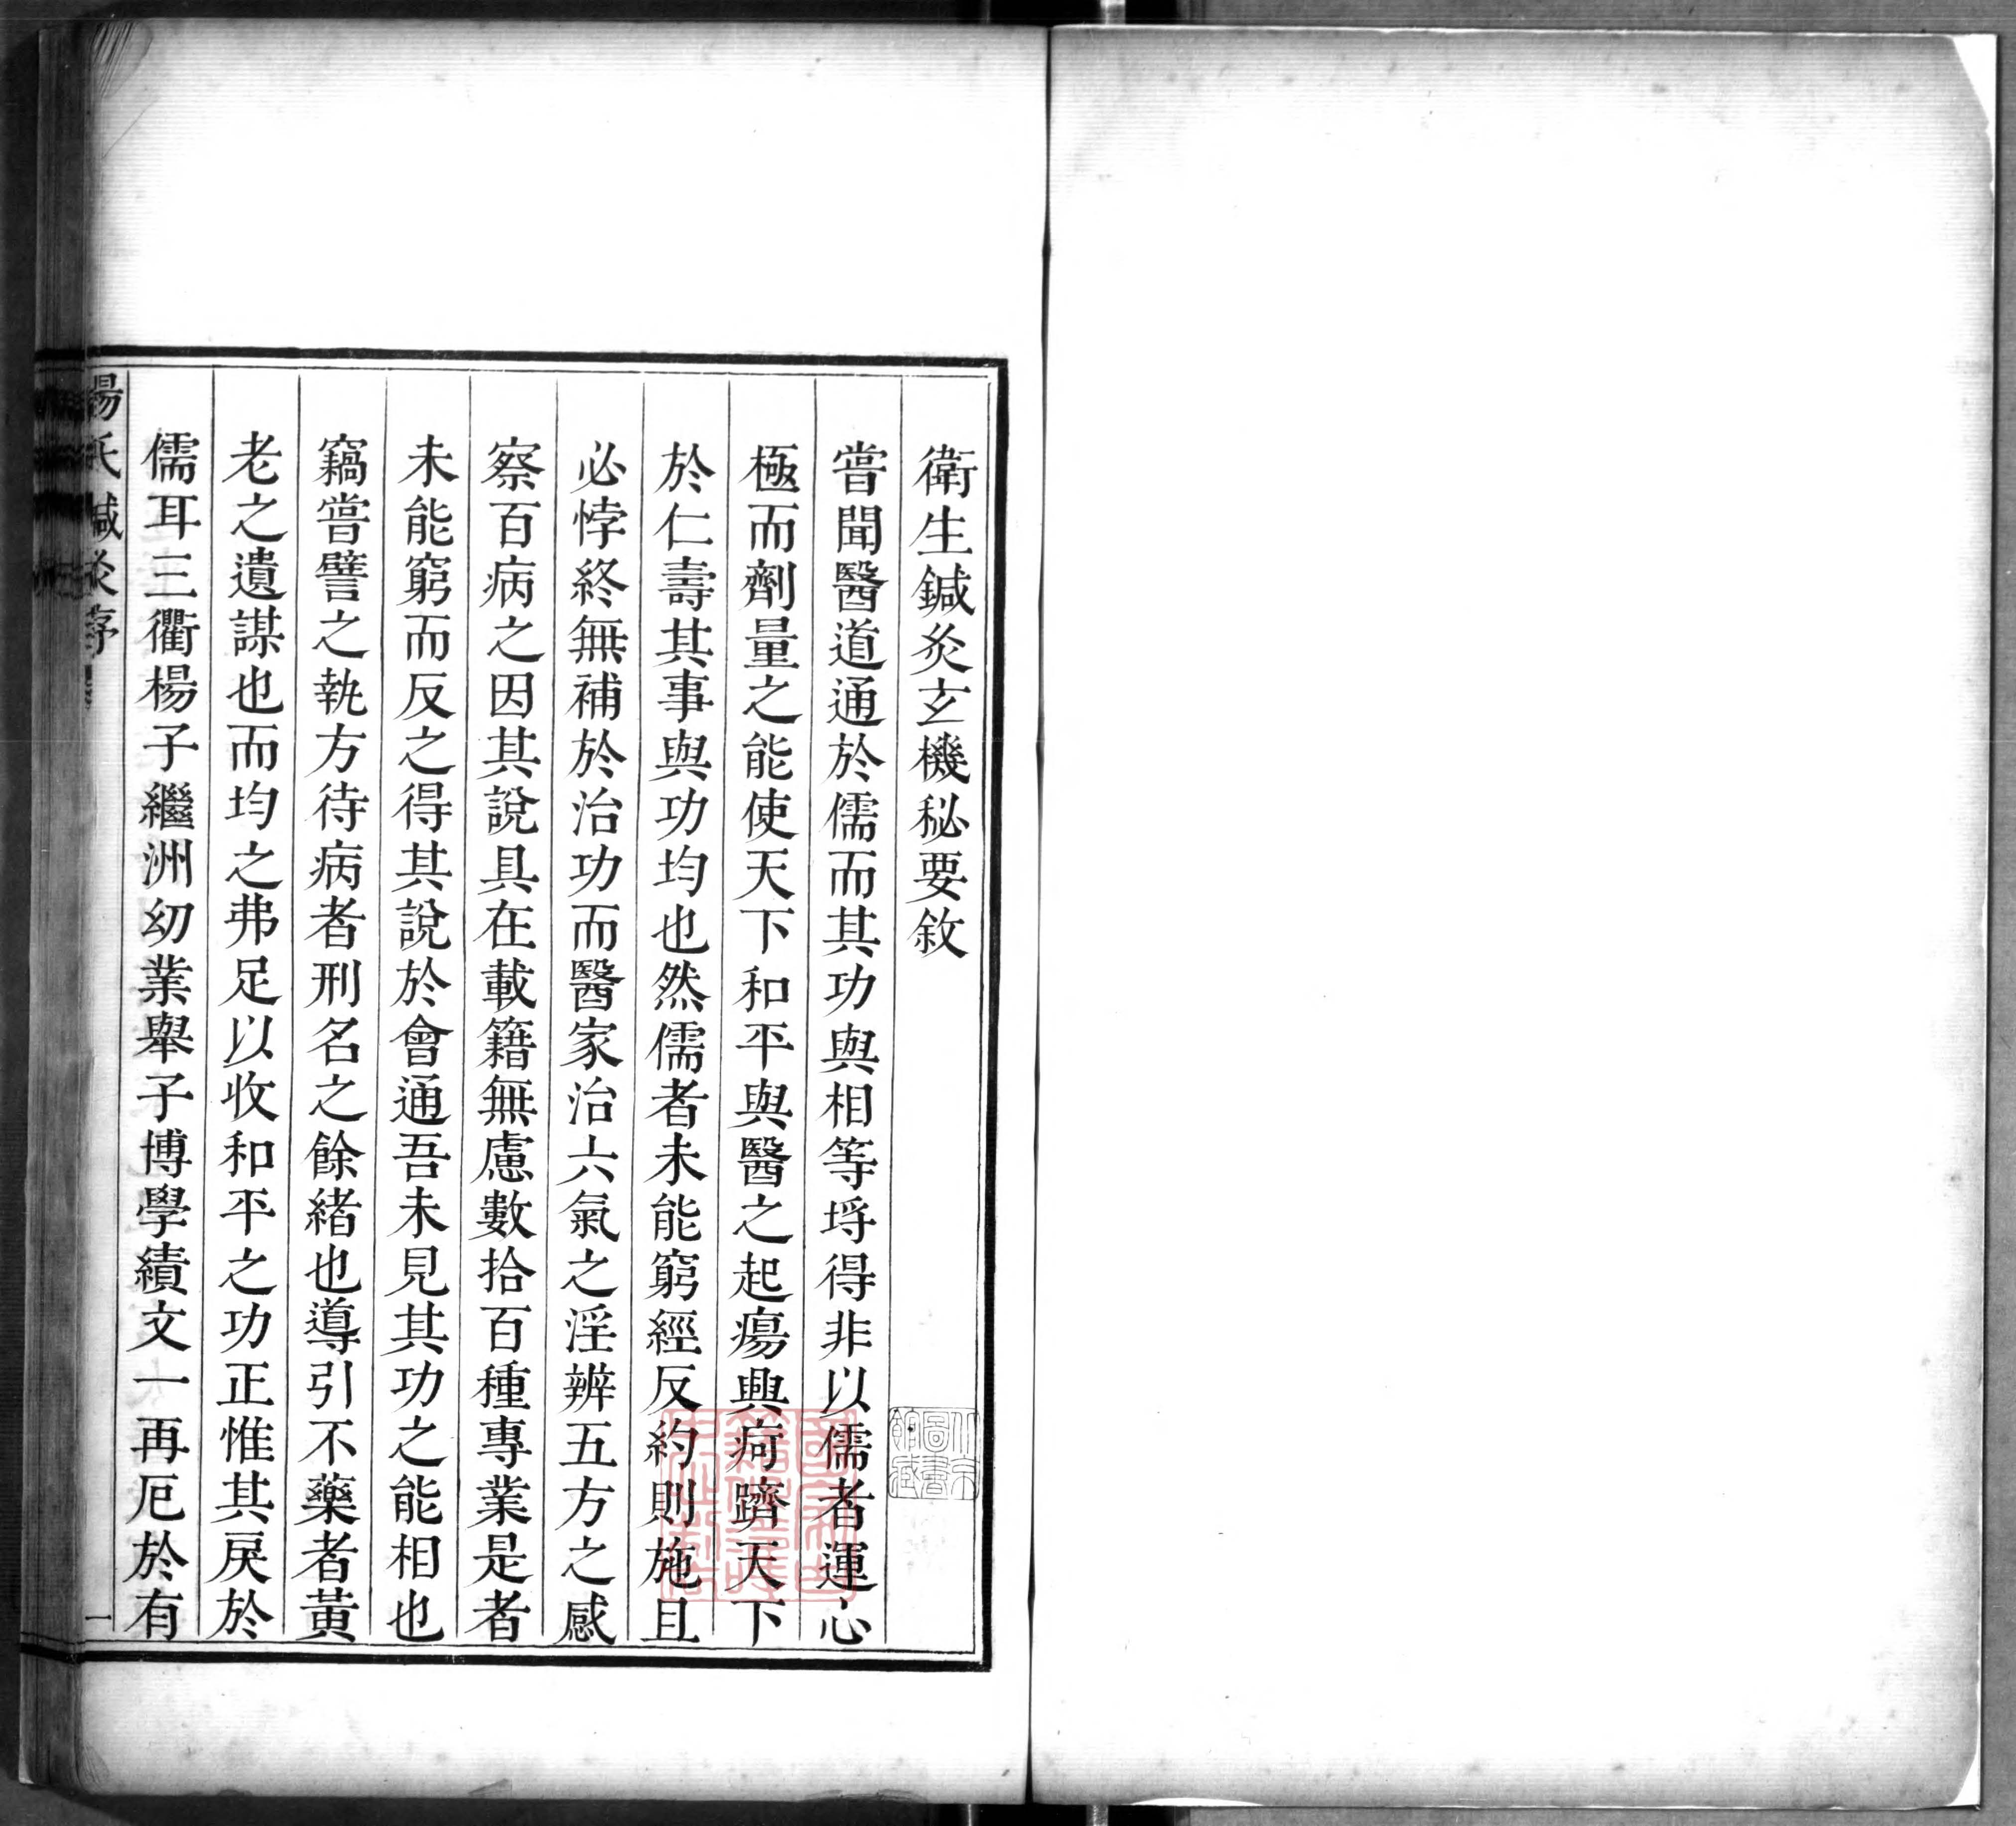 衛生鍼灸玄機秘要敘
嘗聞醫道通於儒而其功與相等埒得非以儒者運心
極而劑量之能使天下和平與醫之起瘍興疴躋天下
於仁壽其事與功均也然儒者未能窮經反約則施且
必悖終無補於治功而醫家治六氣之淫辨五方之感
察百病之因其說具在載籍無慮數拾百種專業是者
未能窮而反之得其說於會通吾未見其功之能相也
竊嘗譬之執方待病者刑名之餘緒也導引不藥者黃
老之遺謀也而均之弗足以收和平之功正惟其戾於
儒耳三衢楊子繼洲幼業舉子博學績文一再厄於有
楊氏鍼灸序
一
北京圖書館藏